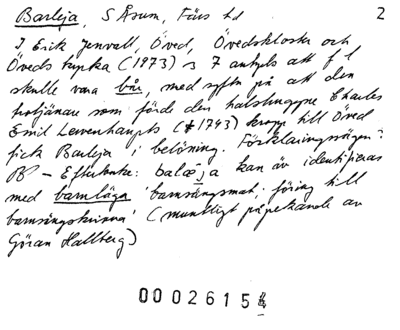 Barleja, S Åsum, Färs hd 2
I Erik Jenvall, Öved, Övedskloster och
Öveds kyrka (1973) s 7 antyds att f l
skulle vara bår, med syftn på att den
trotjänare som förde den halshuggne Charles
Emil Lewenhaupts (†1743) kropp till Öved
fick Barleja i belöning. Förklaringssägen?
– Efterlanke: balæja kan äv identifieras
med barnläga 'barnsängsmat; föring till
barnsängskvinna' (muntligt påpekande av
Göran Hallberg)
00026154